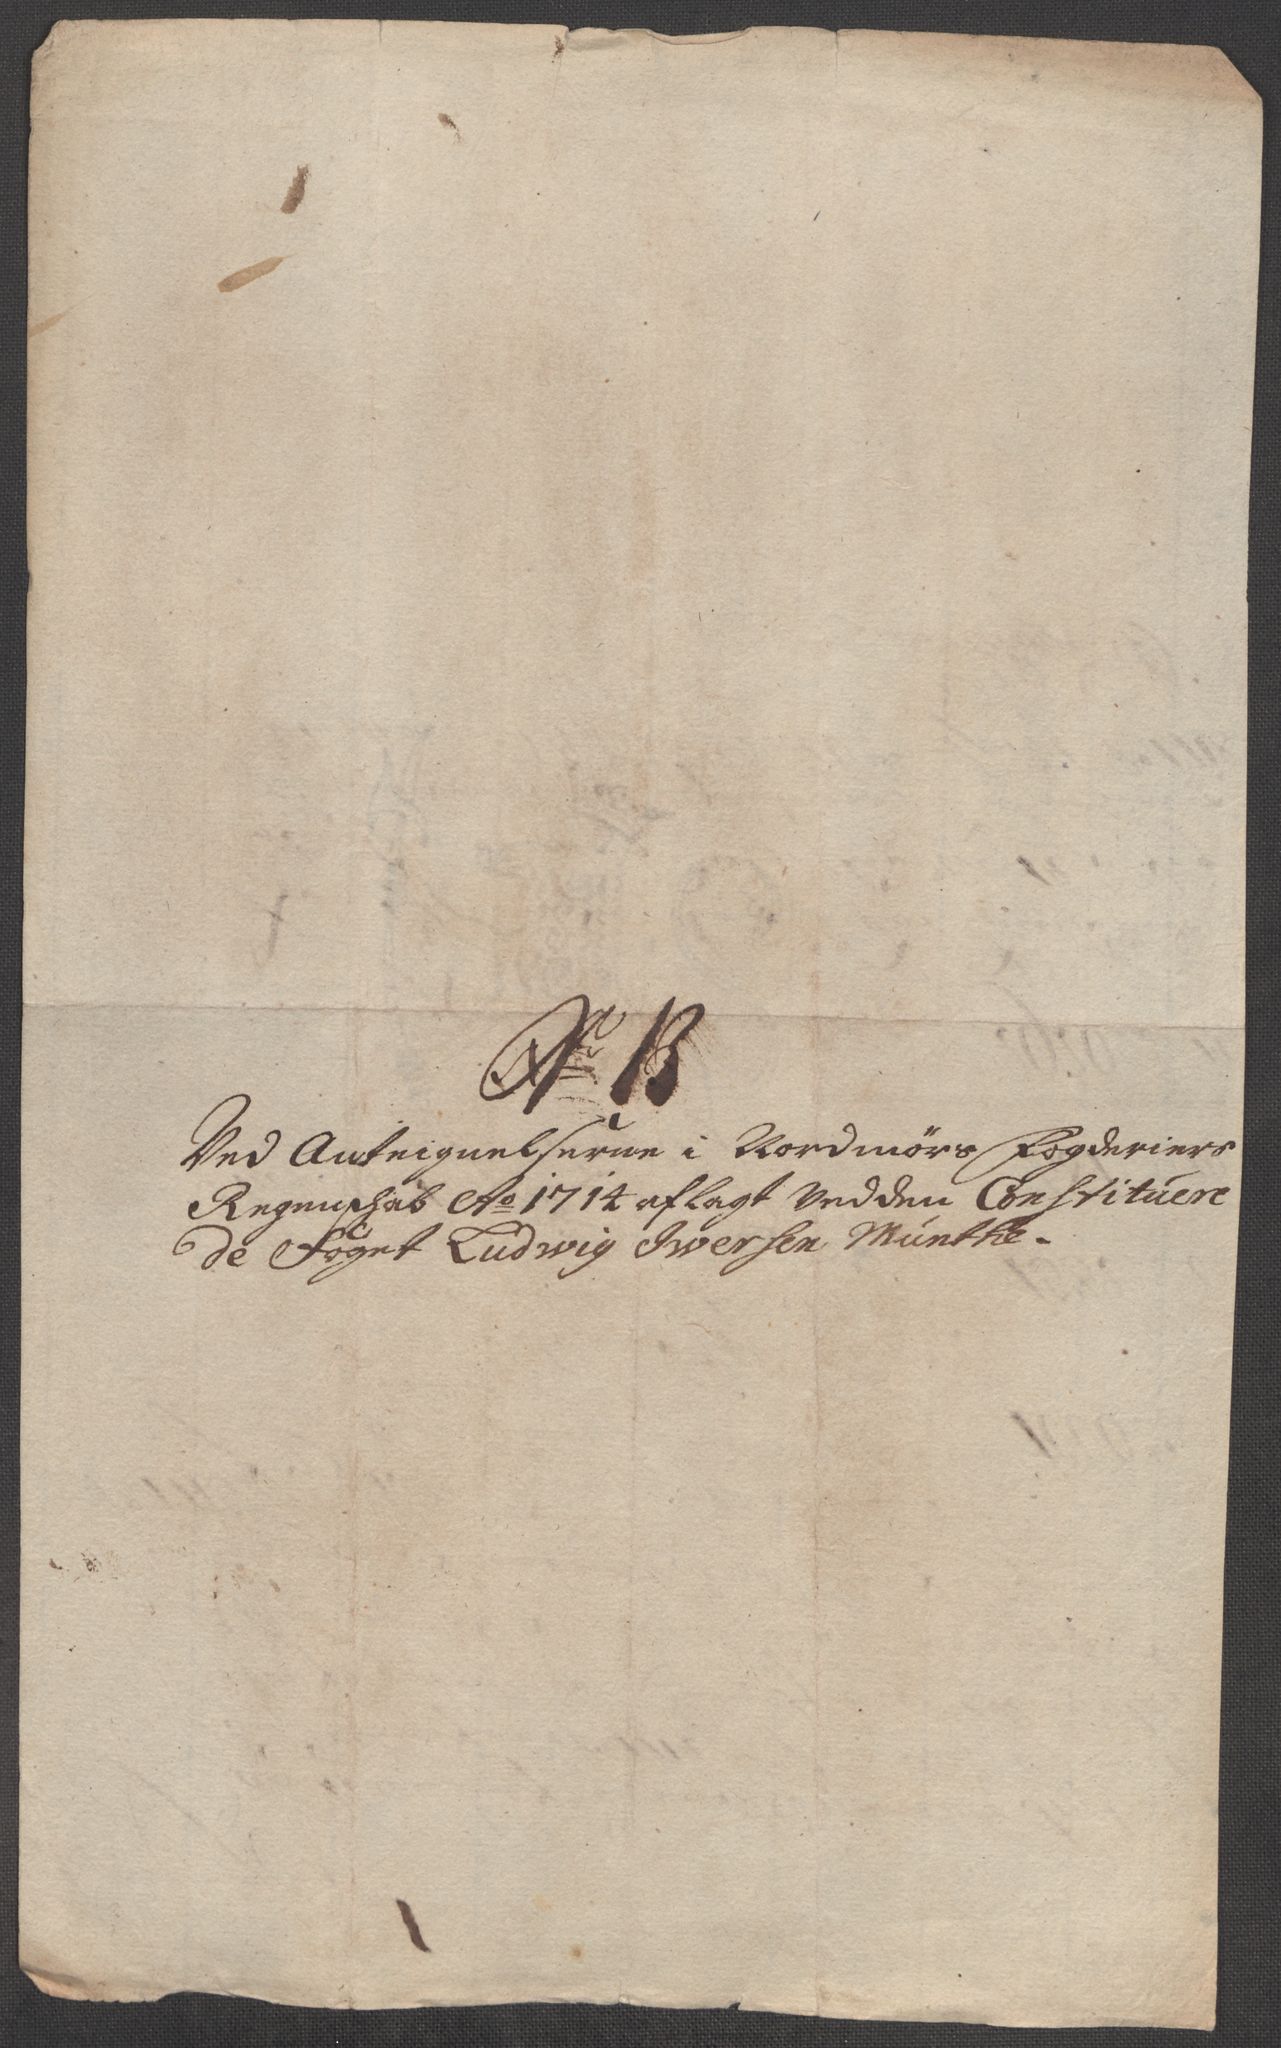 No B
Ved Anteignelserne i Nordmørs Fogderiers
Regenschab Ao 1714 aflagt Ved den Constituere
de Foget Ludwig Iwersen Münthe.